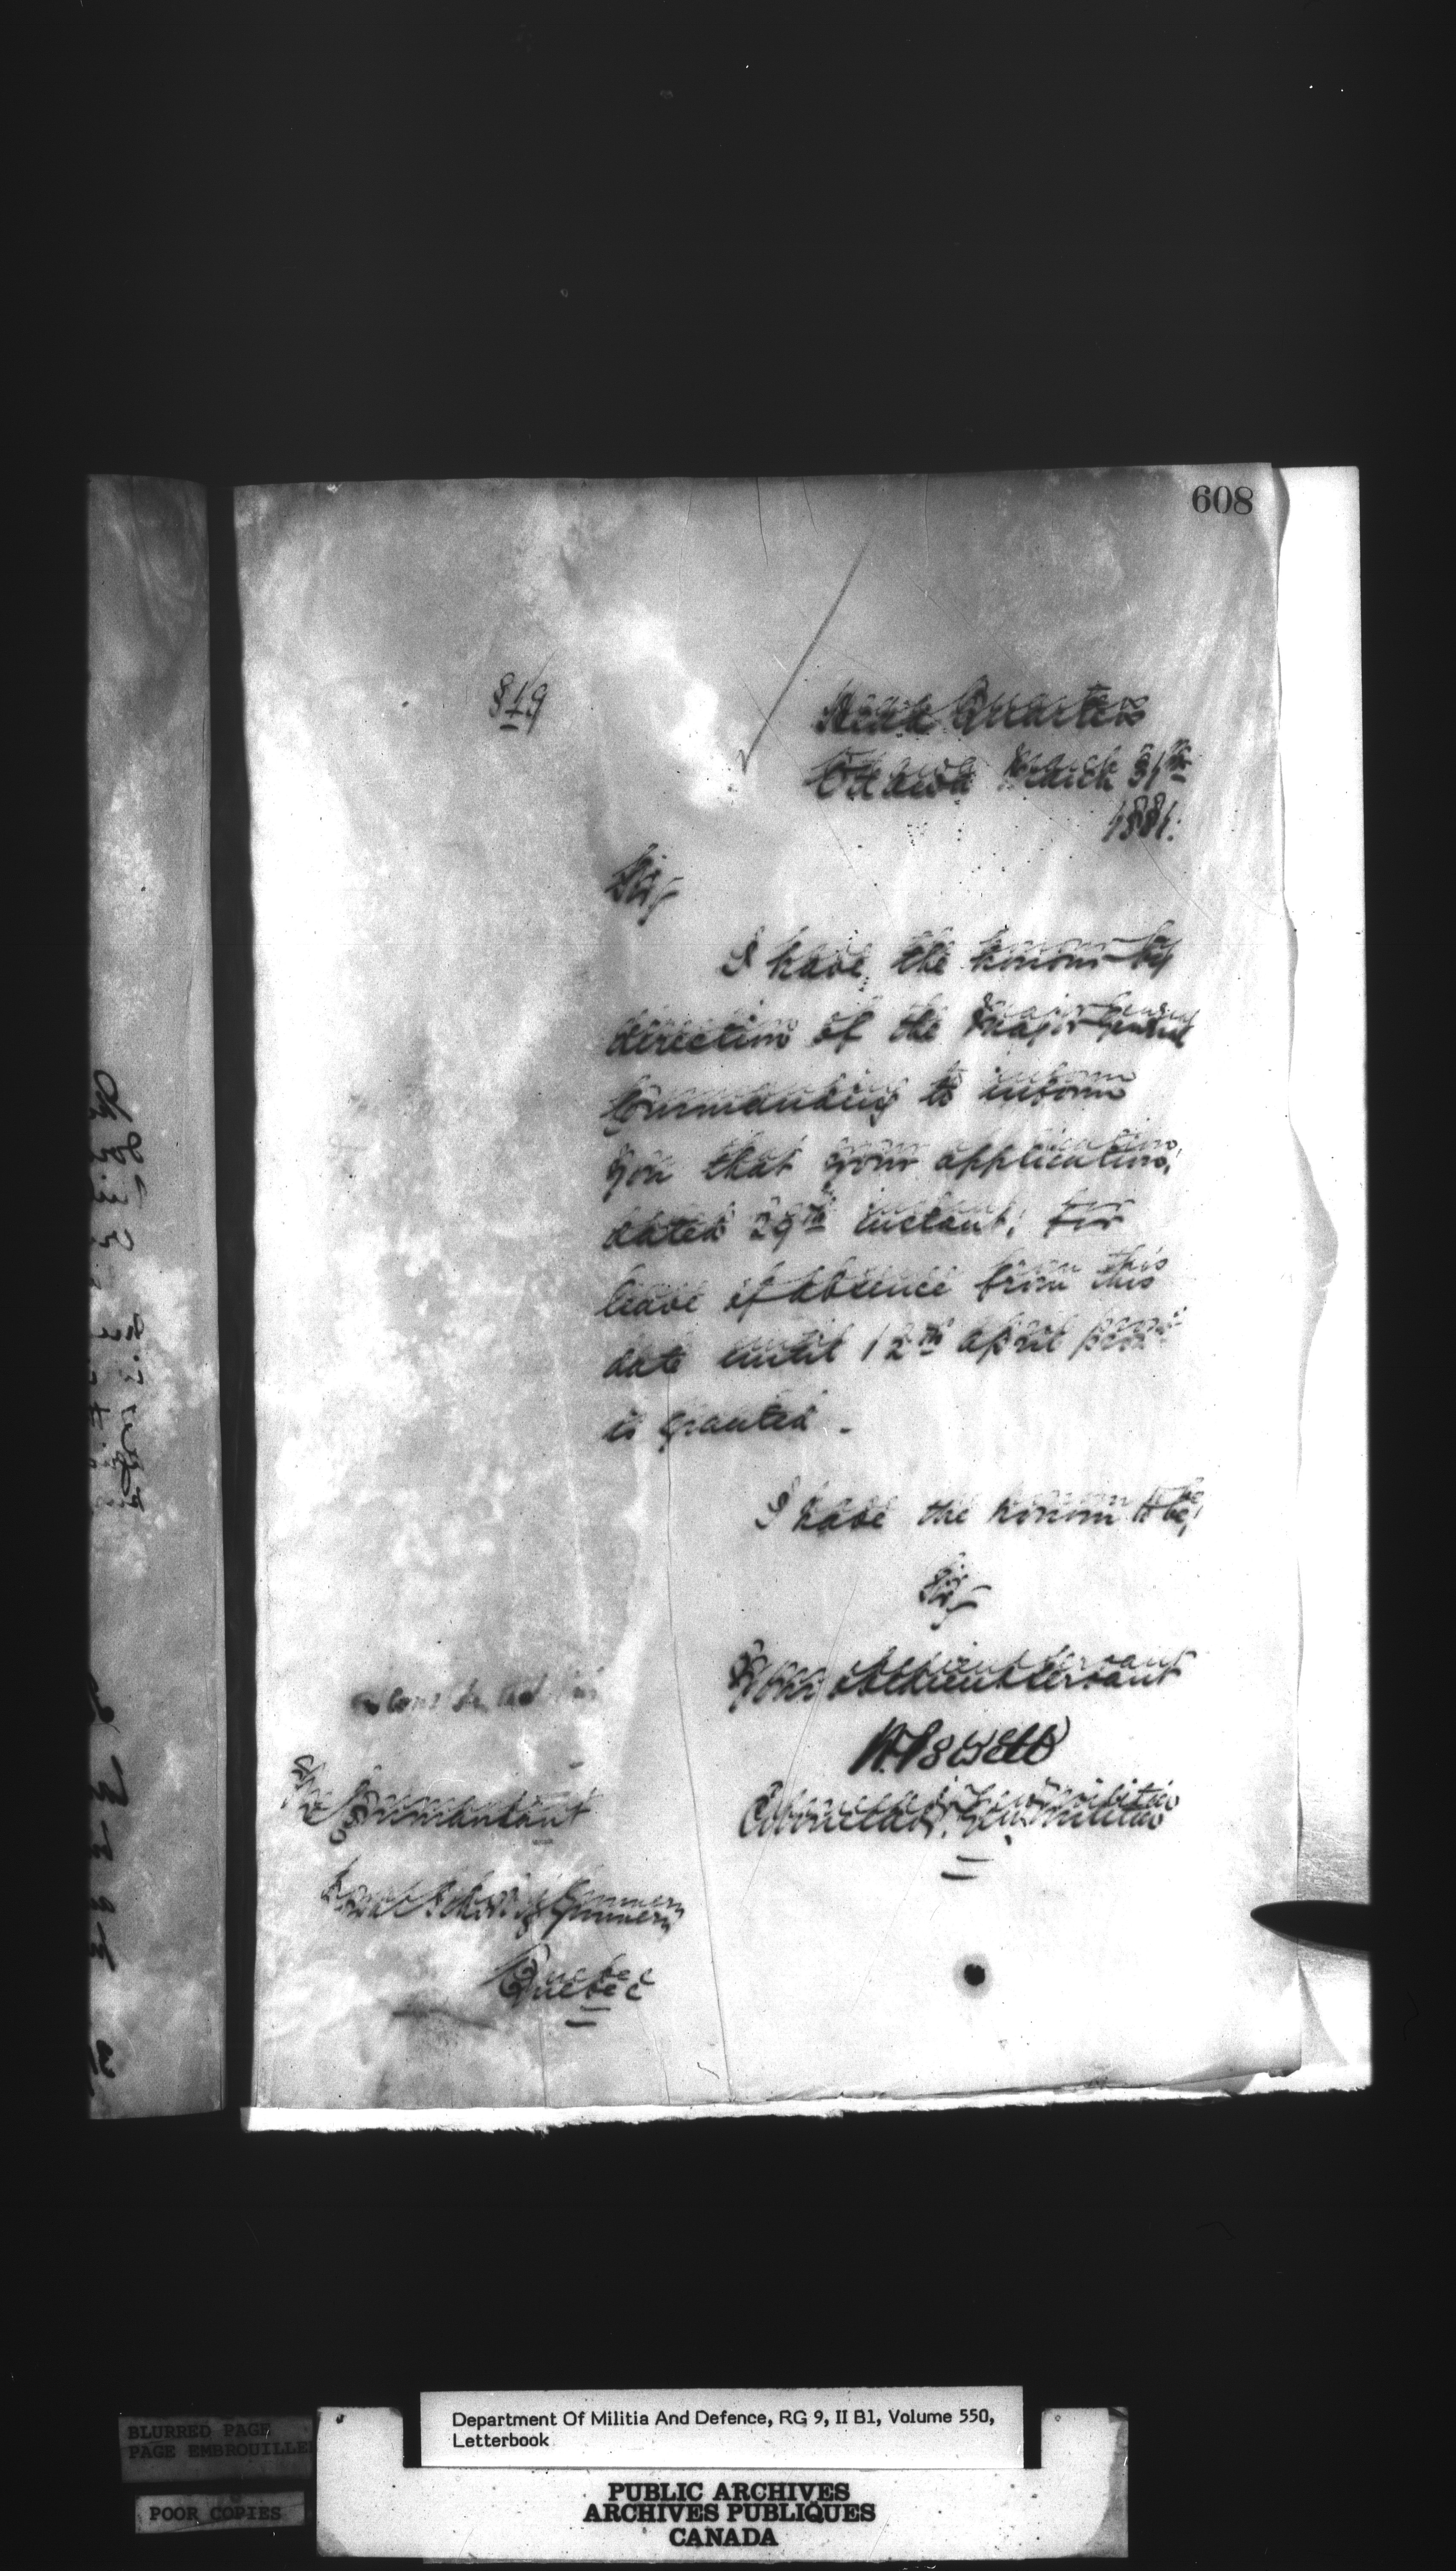 608
819
Head Quarters
Ottawa March 31st
1881.
Sir,
I have the honour by
direction of the Major General
Commanding to inform
you that your application,
dated 29th instant, for
leave of absence from this
date until 12th April
is granted.
I have the honour to be,
Sir,
Your obedient servant
W. Powell
Colonel Adj. Gen. Militia
The Commandant
School of Gunnery
Quebec
BLURRED PAGE
PAGE EMBROUILLE
POOR COPIES
Department Of Militia And Defence, RG 9, II B1, Volume 550,
Letterbook
PUBLIC ARCHIVES
ARCHIVES PUBLIQUES
CANADA